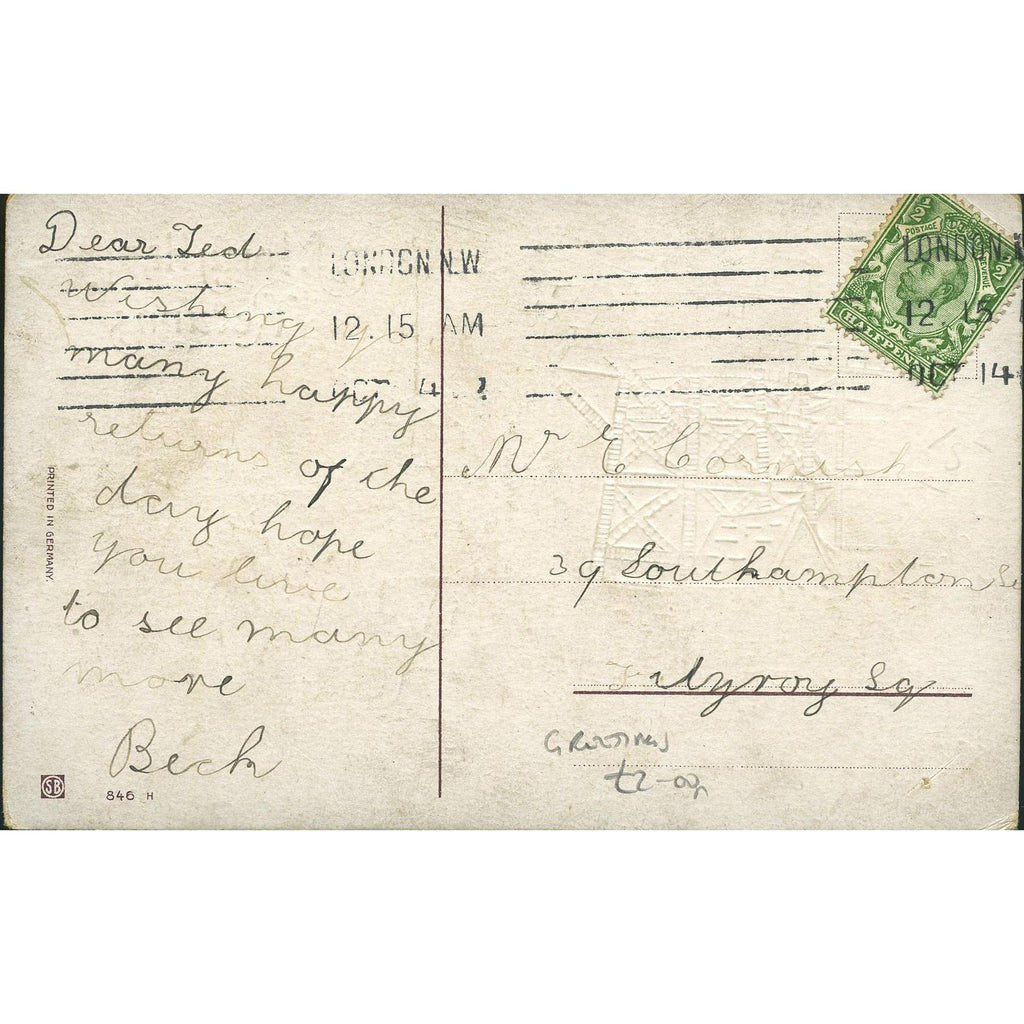 Dear Ted
Wishing y
many happy
returns of the
day hope
you live
to see many
more
Beck
LONDON. N.W
12. 15 AM
OCT 4
PRINTED IN GERMANY.
SB
846 H
1/2
POSTAGE
REVENUE
1/2
HALFPENNY
LONDON.
12 15
OCT 14
Mr E Cornish
39 Southampton
Fitzroy Sq
GREETINGS
£2-00p